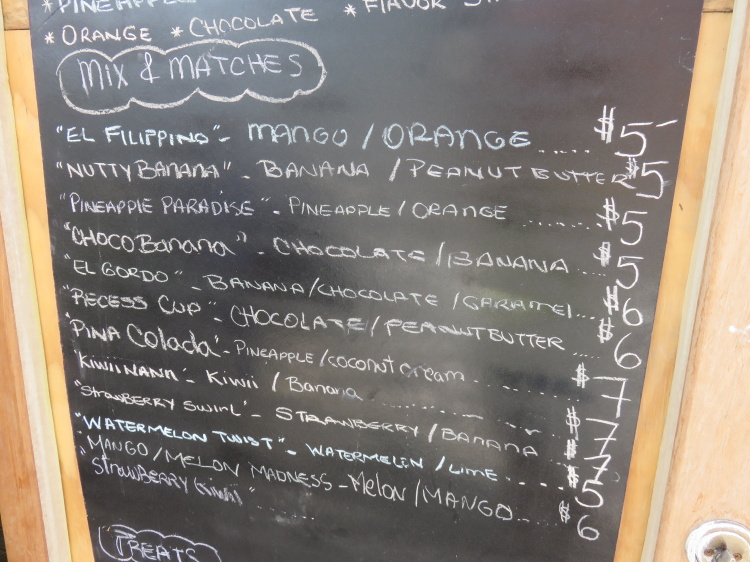 *PINEAPPLE *FLAVOR
*ORANGE *CHOCOLATE
MIX & MATCHES
"EL FILIPPINO" - MANGO / ORANGE ..... $5
"NUTTY BANANA" - BANANA / PEANUT BUTTER $5
"PINEAPPLE PARADISE" - PINEAPPLE / ORANGE ........ $5
"CHOCO Banana" - CHOCOLATE / BANANA .... $5
"EL GORDO" - BANANA/CHOCOLATE / CARAMEL... $6
"RECESS CUP" - CHOCOLATE / PEANUT BUTTER .... $6
"PINA Colada" - PINEAPPLE / coconut cream ........ $7
"KIWIINANA" - KIWII / Banana ........ $7
"STRAWBERRY SWIRL" - STRAWBERRY / BANANA $7
"WATERMELON TWIST" - WATERMELON / LIME .... $5
"MANGO / MELON MADNESS - Melon / MANGO.... $6
"StrawBERRY Kiwii" ........
TREATS